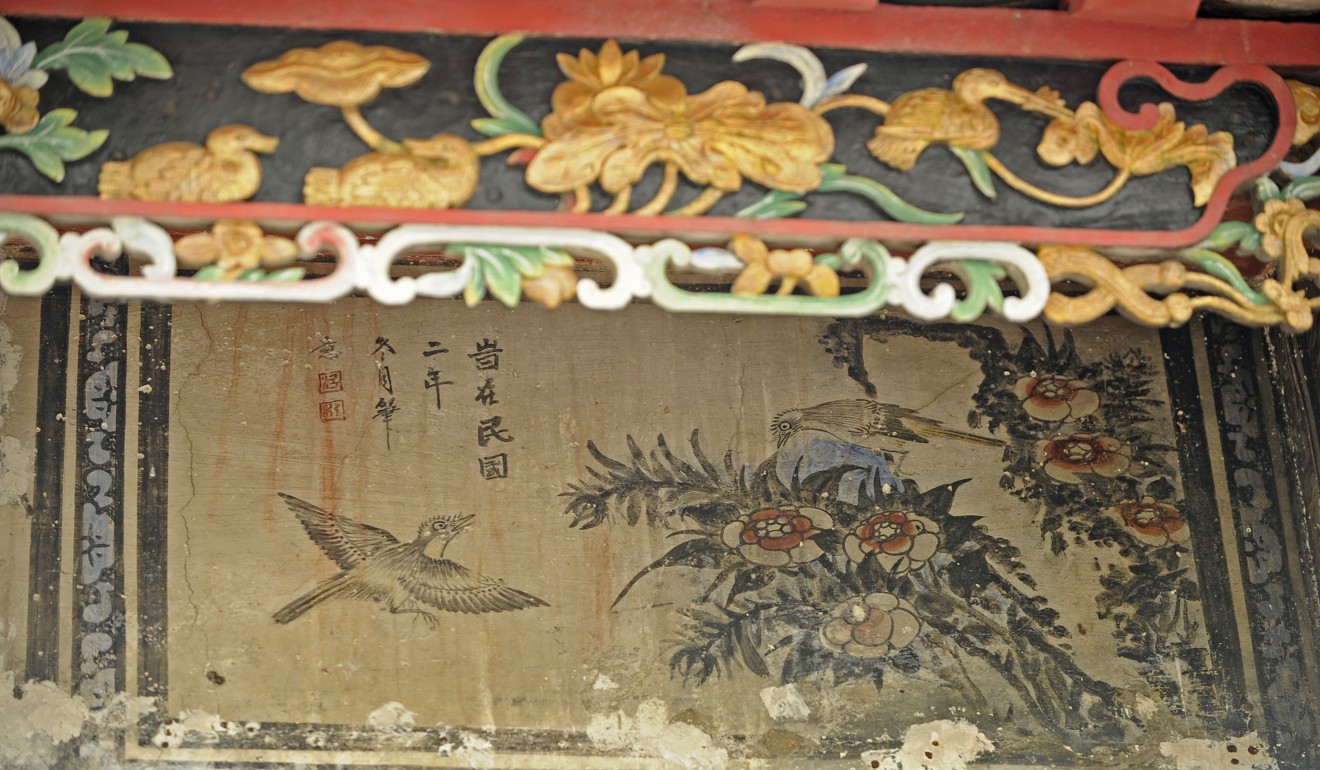 旹在民國
二年
冬月筆